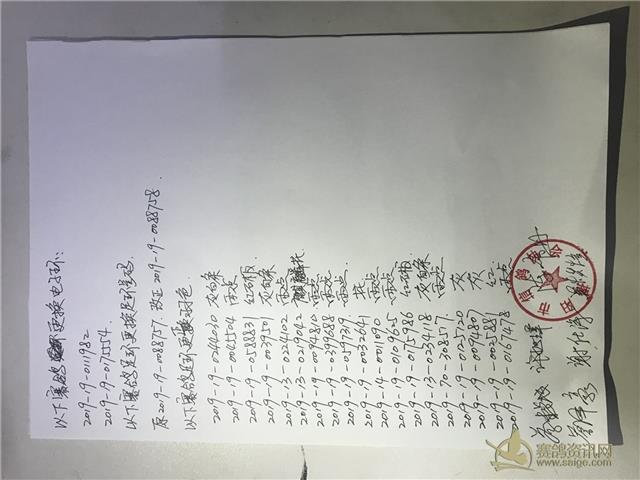 以下赛鸽更换电子环:
2019-19-0111982
2019-19-0175554
以下赛鸽足环更换足环号码
原2019-19-088757 改正2019-19-0088758.
以下赛鸽足环更换羽色
2019-19-0244030 灰白条
2019-19-0045504 雨点
2019-19-0588831 红雨
2019-19-0039501 灰白条
2019-13-0224102 雨点
2019-13-0219042 麒麟花
2019-19-0094810 雨点
2019-19-0399688 雨花
2019-19-0597319 雨点
2019-19-0003264 花
2019-14-0011090 雨点
2019-19-0109625 雨点
2019-19-0175986 红雨
2019-13-0234118 灰白条
2019-70-308517 雨点
2019-19-0125720 灰
2019-19-0096807 灰
2019-19-0025881 红
2019-19-0167478 雨点
市信鸽协会
赛鸽资讯网
www.saige.com